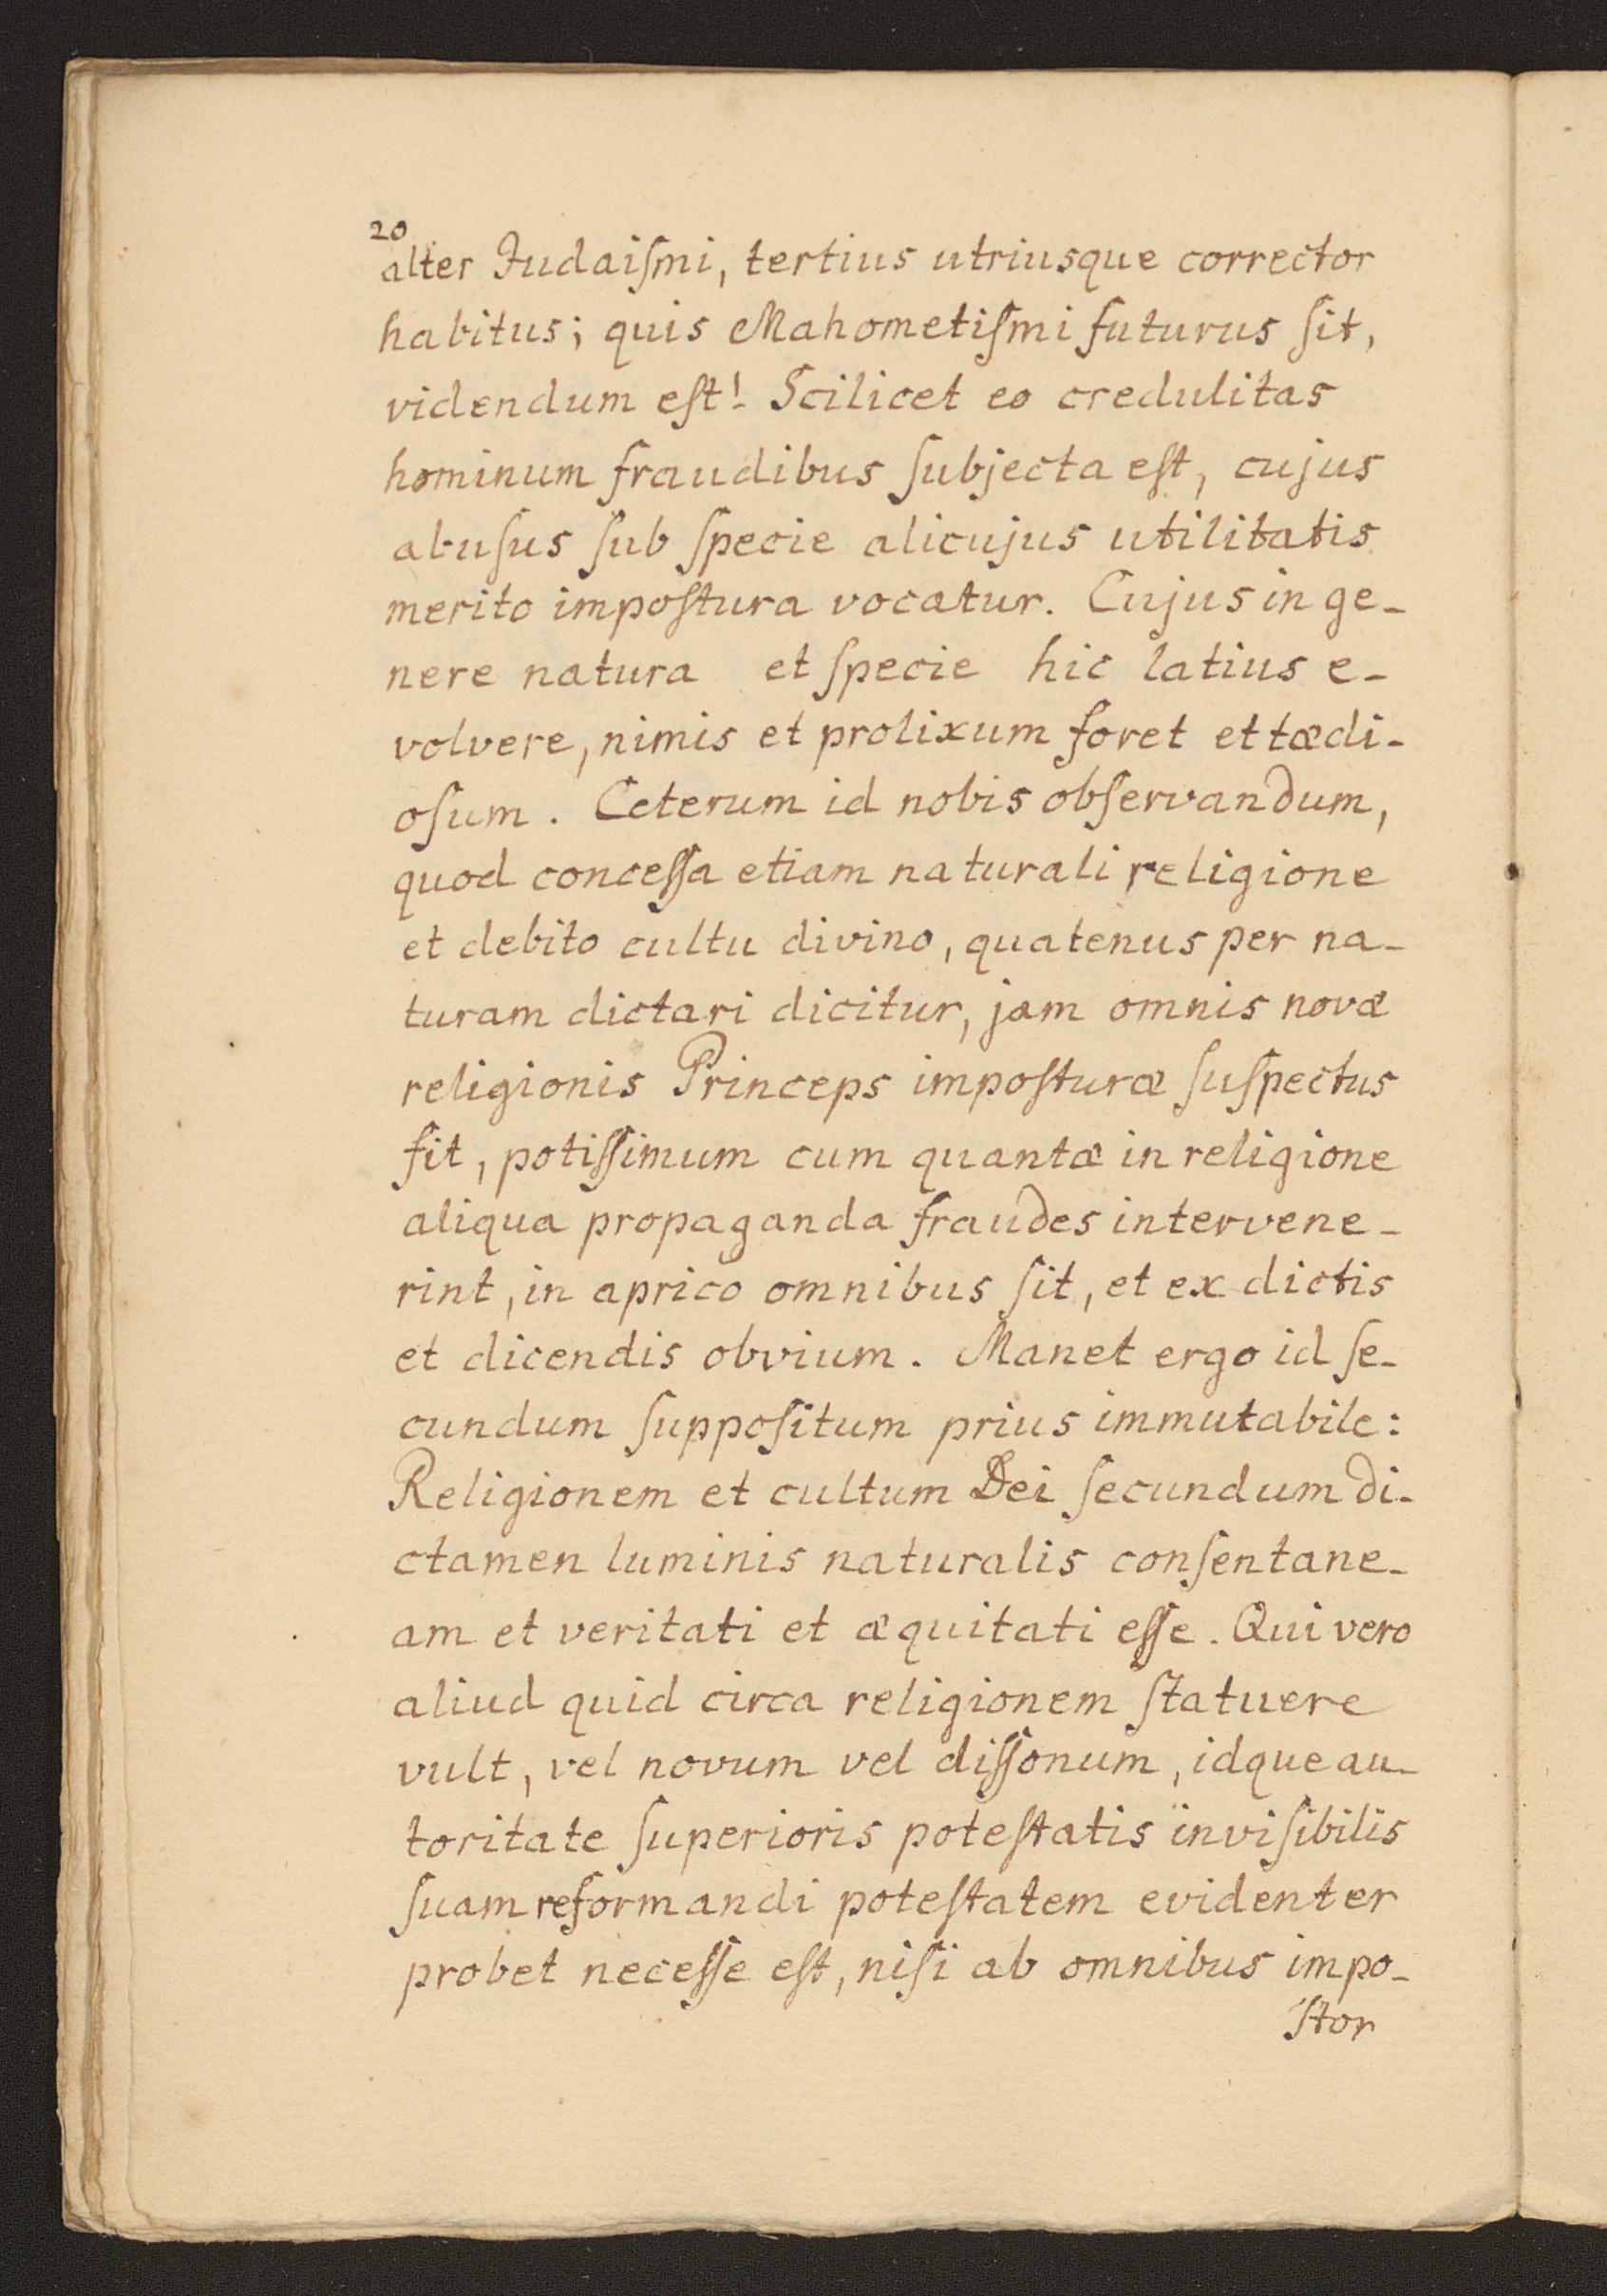 20
alter Judaiſmi, tertius utriusque corrector
habitus; quis Mahometiſmi futurus ſit,
videndum eſt! Scilicet eo credulitas
hominum fraudibus ſubjecta eſt, cujus
abuſus ſub ſpecie alicujus utilitatis
merito impoſtura vocatur. Cujus in ge-
nere natura et ſpecie hic latius e-
volvere, nimis et prolixum foret et tædi-
oſum. Ceterum id nobis obſervandum,
quod conceſſa etiam naturali religione
et debito cultu divino, quatenus per na-
turam dictari dicitur, jam omnis novæ
religionis Princeps impoſturæ ſuſpectus
fit, potiſſimum cum quantæ in religione
aliqua propaganda fraudes intervene-
rint, in aprico omnibus ſit, et ex dictis
et dicendis obvium. Manet ergo id ſe-
cundum ſuppoſitum prius immutabile:
Religionem et cultum Dei ſecundum di-
ctamen luminis naturalis conſentane-
am et veritati et æquitati eſſe. Qui vero
aliud quid circa religionem ſtatuere
vult, vel novum vel diſſonum, idque au-
toritate ſuperioris poteſtatis inviſibilis
ſuam reformandi poteſtatem evidenter
probet neceſſe eſt, niſi ab omnibus impo-
ſtor